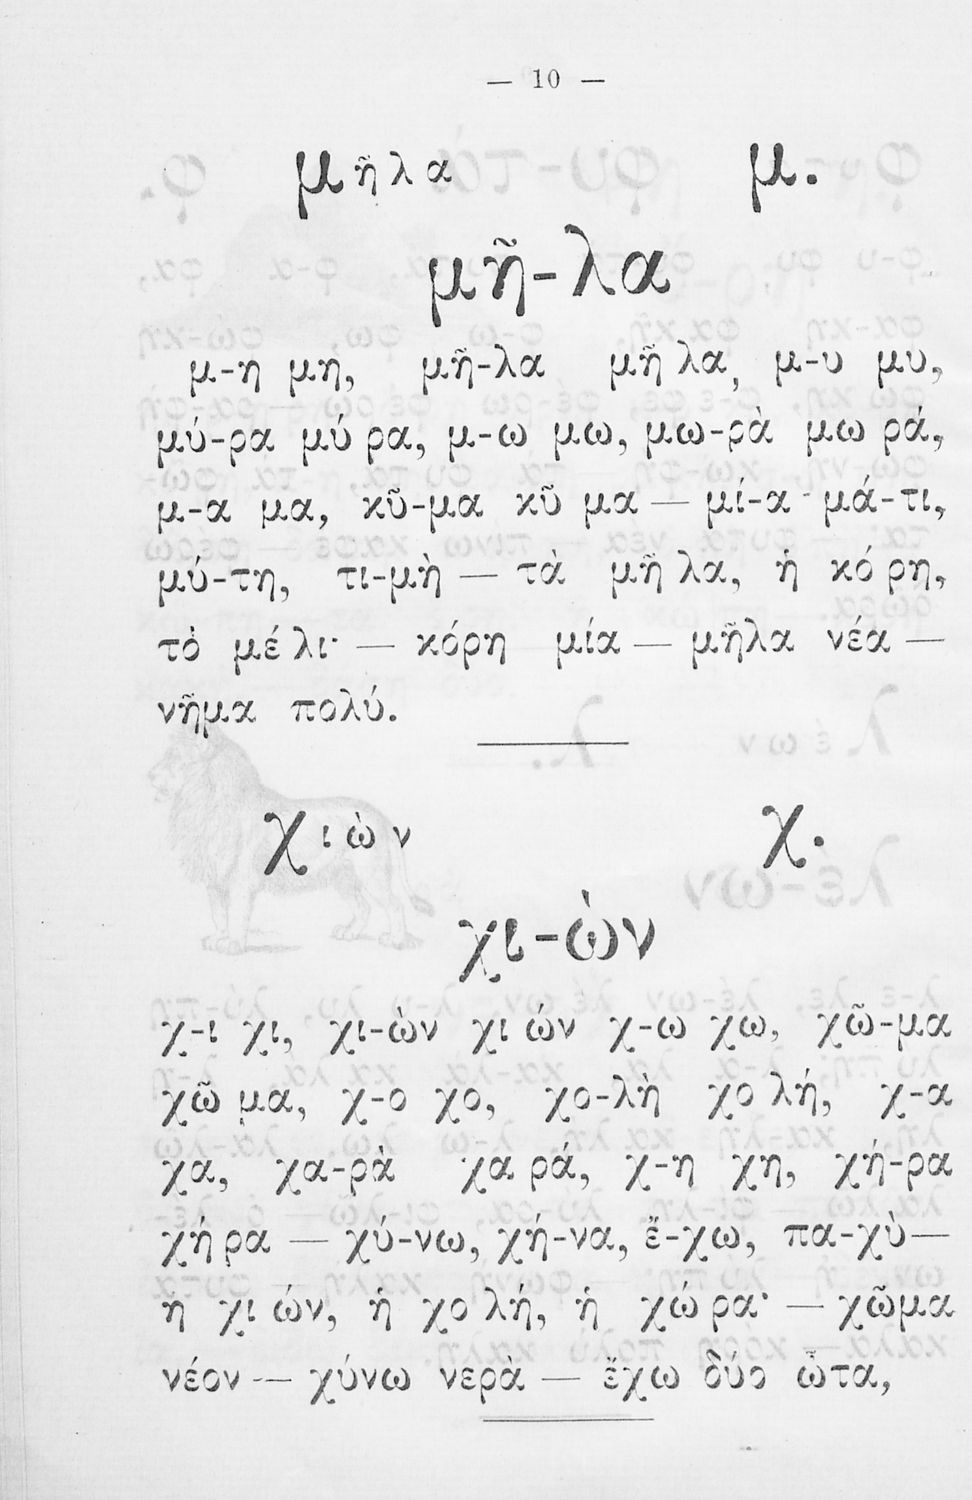 — 10 —
μῆλα μ.
μῆ-λα
μ-η μη, μῆ-λα μῆ λα, μ-υ μυ,
μύ-ρα μύ ρα, μ-ω μω, μω-ρὰ μω ρά,
μ-α μα, κῦ-μα κῦ μα — μί-α· μά-τι,
μύ-τη, τι-μὴ — τὰ μῆ λα, ἡ κό ρη,
τὸ μέ λι· — κόρη μία — μῆλα νέα —
νῆμα πολύ.
χιὼν χ.
χι-ὼν
χ-ι χι, χι-ὼν χι ών χ-ω χω, χῶ-μα
χῶ μα, χ-ο χο, χο-λὴ χο λή, χ-α
χα, χα-ρὰ χα ρά, χ-η χη, χή-ρα
χή ρα — χύ-νω, χή-να, ἔ-χω, πα-χὺ—
η χι ών, ἡ χο λή, ἡ χώ ρα· — χῶμα
νέον -— χύνω νερὰ — ἔχω δύο ὦτα,